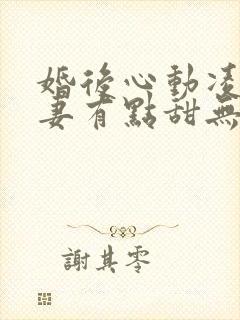 婚後心動凌
妻有點甜無
謝其零